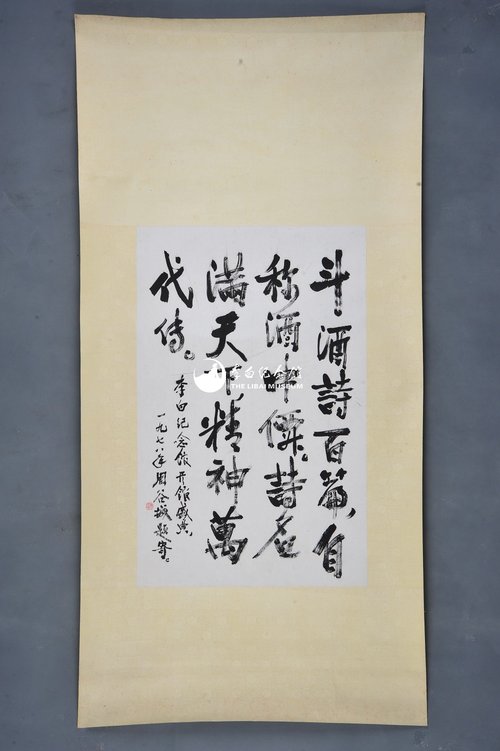 斗酒詩百篇，自
称酒中僊。詩名
满天下精神萬
代传。
李白纪念馆开馆盛典，
一九七八年周谷城题寄。
李白纪念馆
THE LIBAI MUSEUM